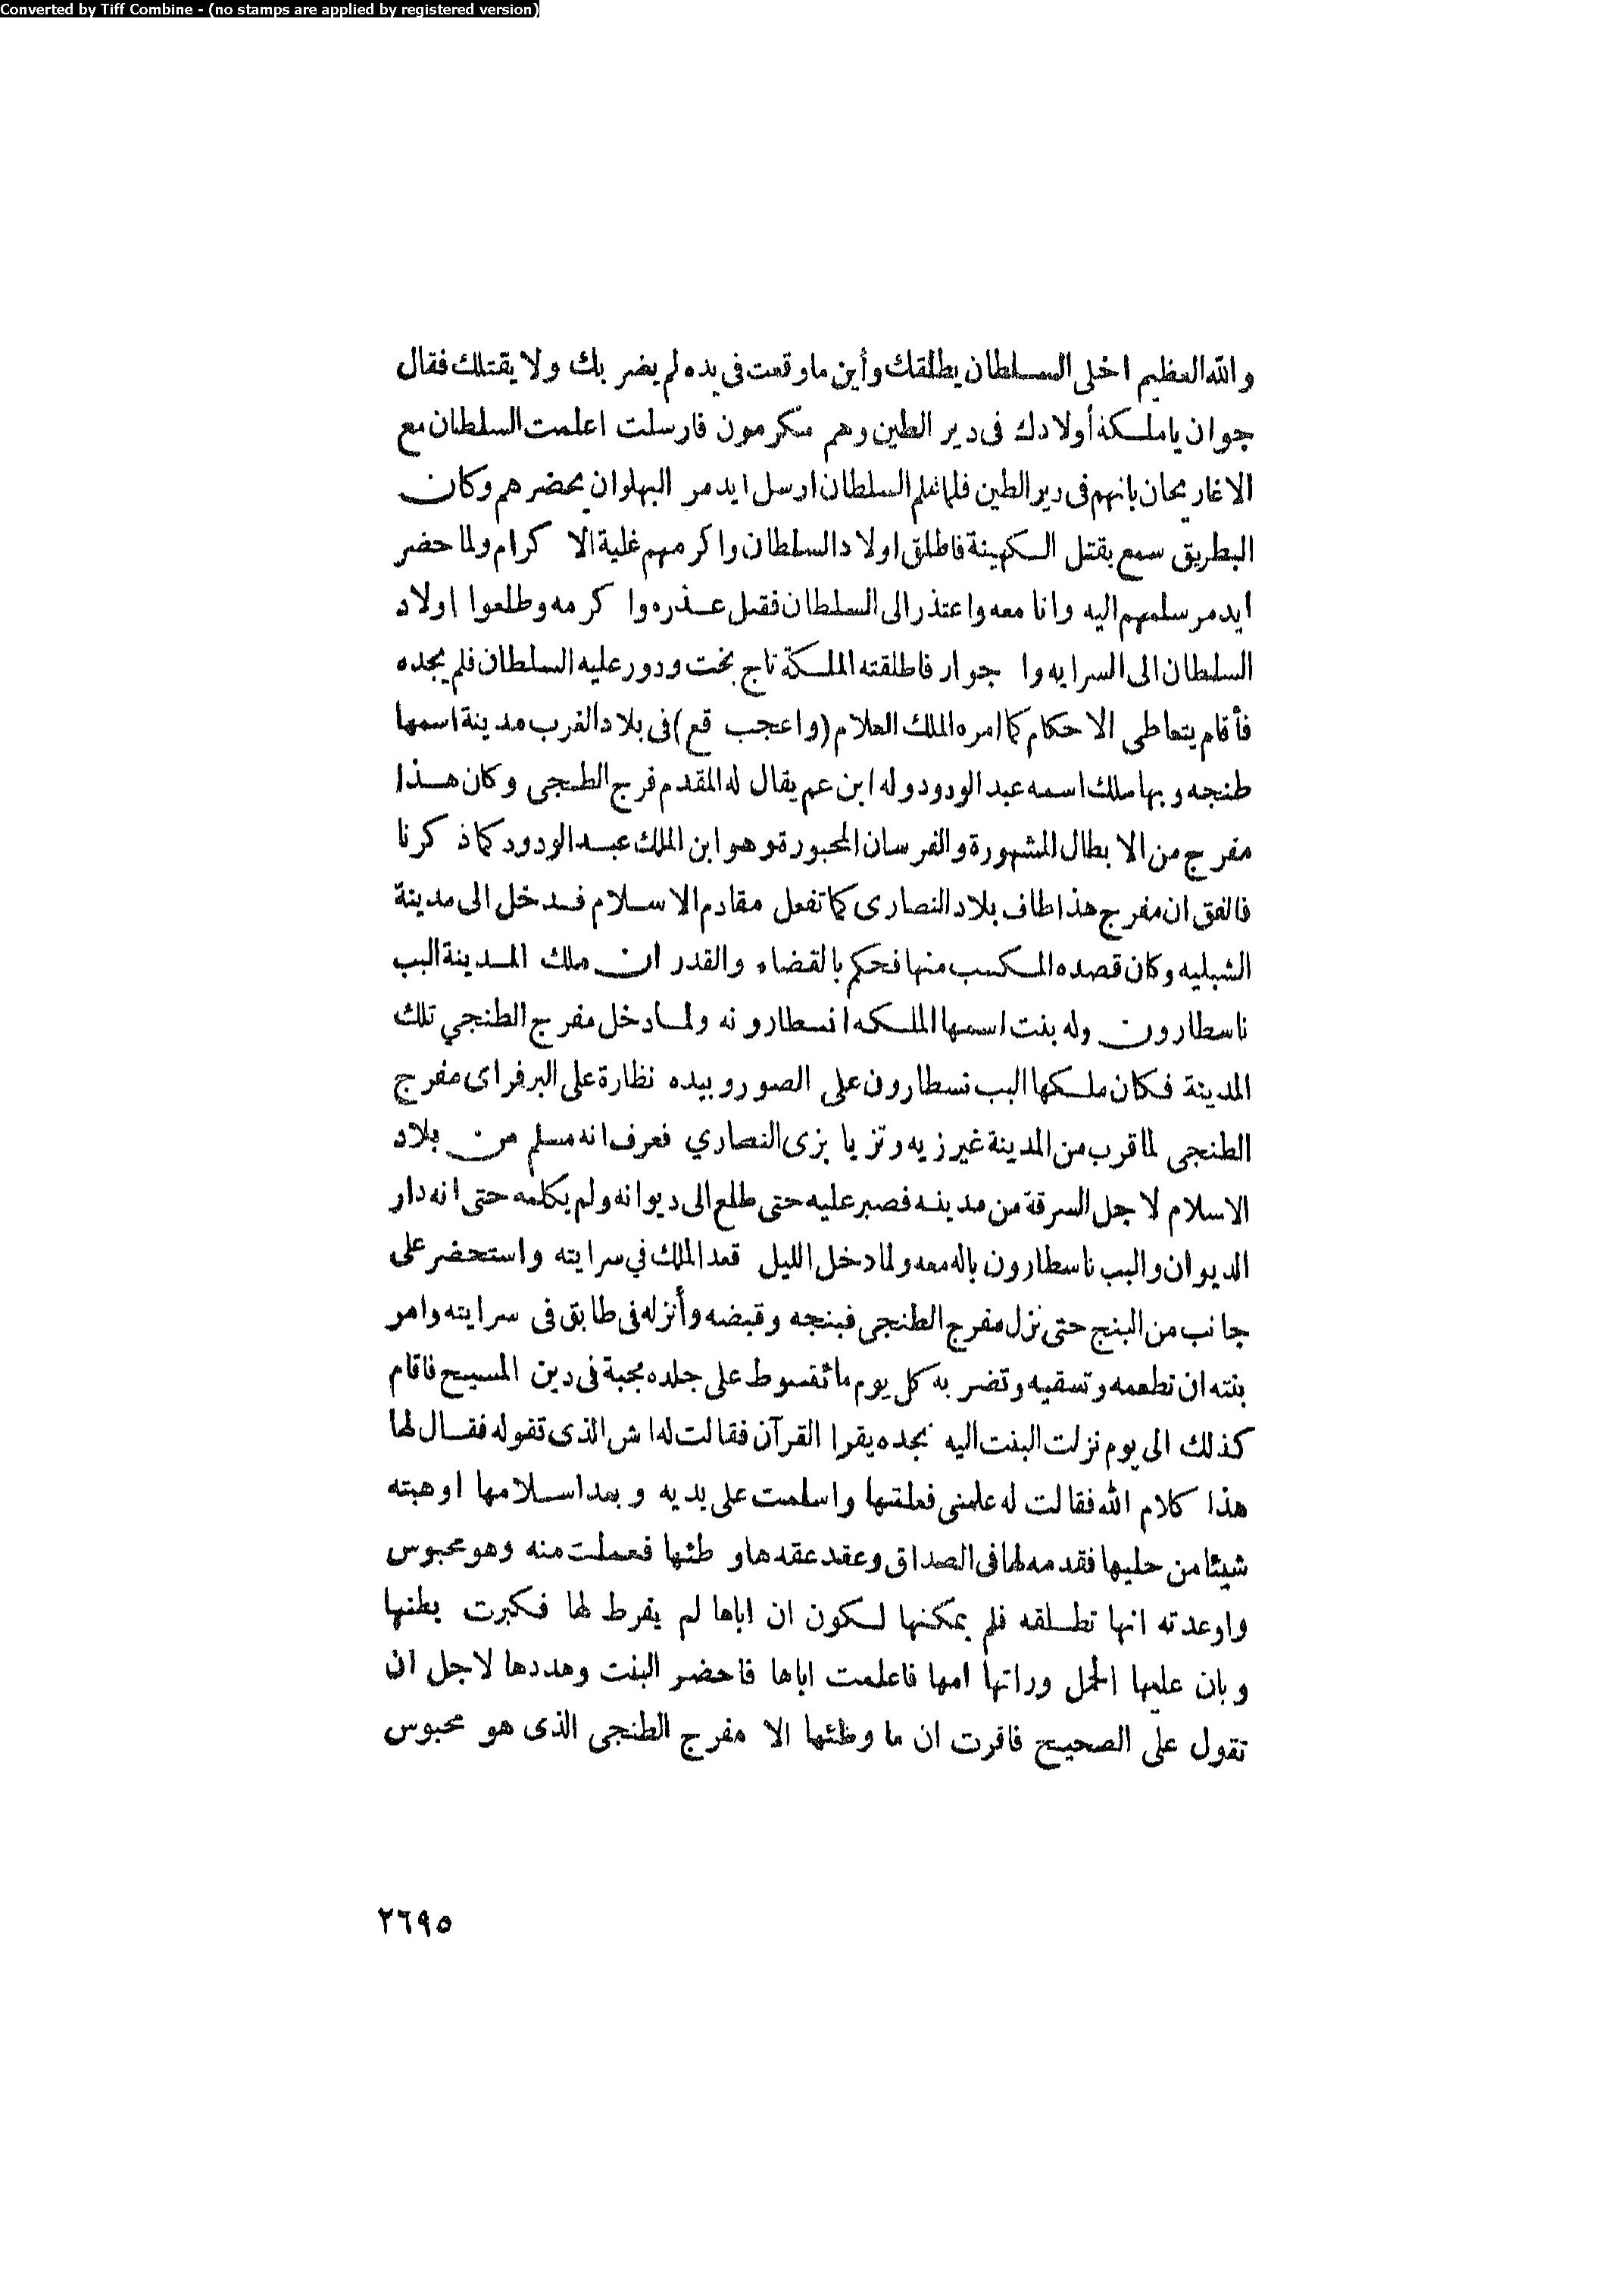 Converted by Tiff Combine - (no stamps are applied by registered version)
والله العظيم اخلى السلطان يطلقك وأين ما وقعت فى يده لم يضر بك ولا يقتلك فقال
جوان ياملكة أولادك فى دير الطين وهم مكرمون فارسلت اعلمت السلطان مع
الاغاريحان بانهم فى دير الطين فلما علم السلطان ارسل ايدمر البهلوان يحضرهم وكان
البطريق سمع بقتل الكهينة فاطلق اولاد السلطان واكرمهم غلية الاكرام ولما حضر
ايدمر سلمهم اليه وانا معه واعتذر الى السلطان فقبل عذره واكرمه وطلعوا اولاد
السلطان الى السرايه وا جوار فاطلقته الملكة تاج بخت ودور عليه السلطان فلم يجده
فأقام يتعاطى الاحكام كما امره الملك العلام (واعجب قع) فى بلاد الغرب مدينة اسمها
طنجه وبها ملك اسمه عبد الودود وله ابن عم يقال له المقدم فرج الطنجى وكان هذا
مفرج من الابطال المشهورة والفرسان المحبورة وهو ابن الملك عبد الودود كما ذكرنا
فاتفق ان مفرج هذا طاف بلاد النصارى كما تفعل مقادم الاسلام فدخل الى مدينة
الشبليه وكان قصده المكسب منها فحكم بالقضاء والقدر ان ملك المدينة البب
ناسطارون وله بنت اسمها الملكه انسطارونه ولما دخل مفرج الطنجي تلك
المدينة فكان ملكها البب نسطارون على الصور وبيده نظارة على البر فراى مفرج
الطنجى لما قرب من المدينة غير زيه وتزيا بزى النصاري فعرف انه مسلم من بلاد
الاسلام لاجل السرقة من مدينه فصبر عليه حتى طلع الى ديوانه ولم يكلمه حتى انه دار
الديوان والبب ناسطارون باله معه ولما دخل الليل قعد الملك في سرايته واستحضر على
جانب من البنج حتى نزل مفرج الطنجى فبنجه وقبضه وأنزله فى طابق فى سرايته وامر
بنته ان تطعمه وتسقيه وتضربه كل يوم مائقسوط على جلده محبة فى دين المسيح فاقام
كذلك الى يوم نزلت البنت اليه تجده يقرا القرآن فقالت له اش الذى تقوله فقال لها
هذا كلام الله فقالت له علمنى فعلمها واسلمت على يديه وبعد اسلامها اوهبته
شيئا من حليها فقدمه لها فى الصداق وعقد عقدها وطئها فعملت منه وهو محبوس
واوعدته انها تطلقه فلم يمكنها لكون ان اباها لم يفرط لها فكبرت بطنها
وبان عليها الحمل وراتها امها فاعلمت اباها فاحضر البنت وهددها لاجل ان
تقول على الصحيح فاقرت ان ما وطئها الا مفرج الطنجى الذى هو محبوس
٢٦٩٥